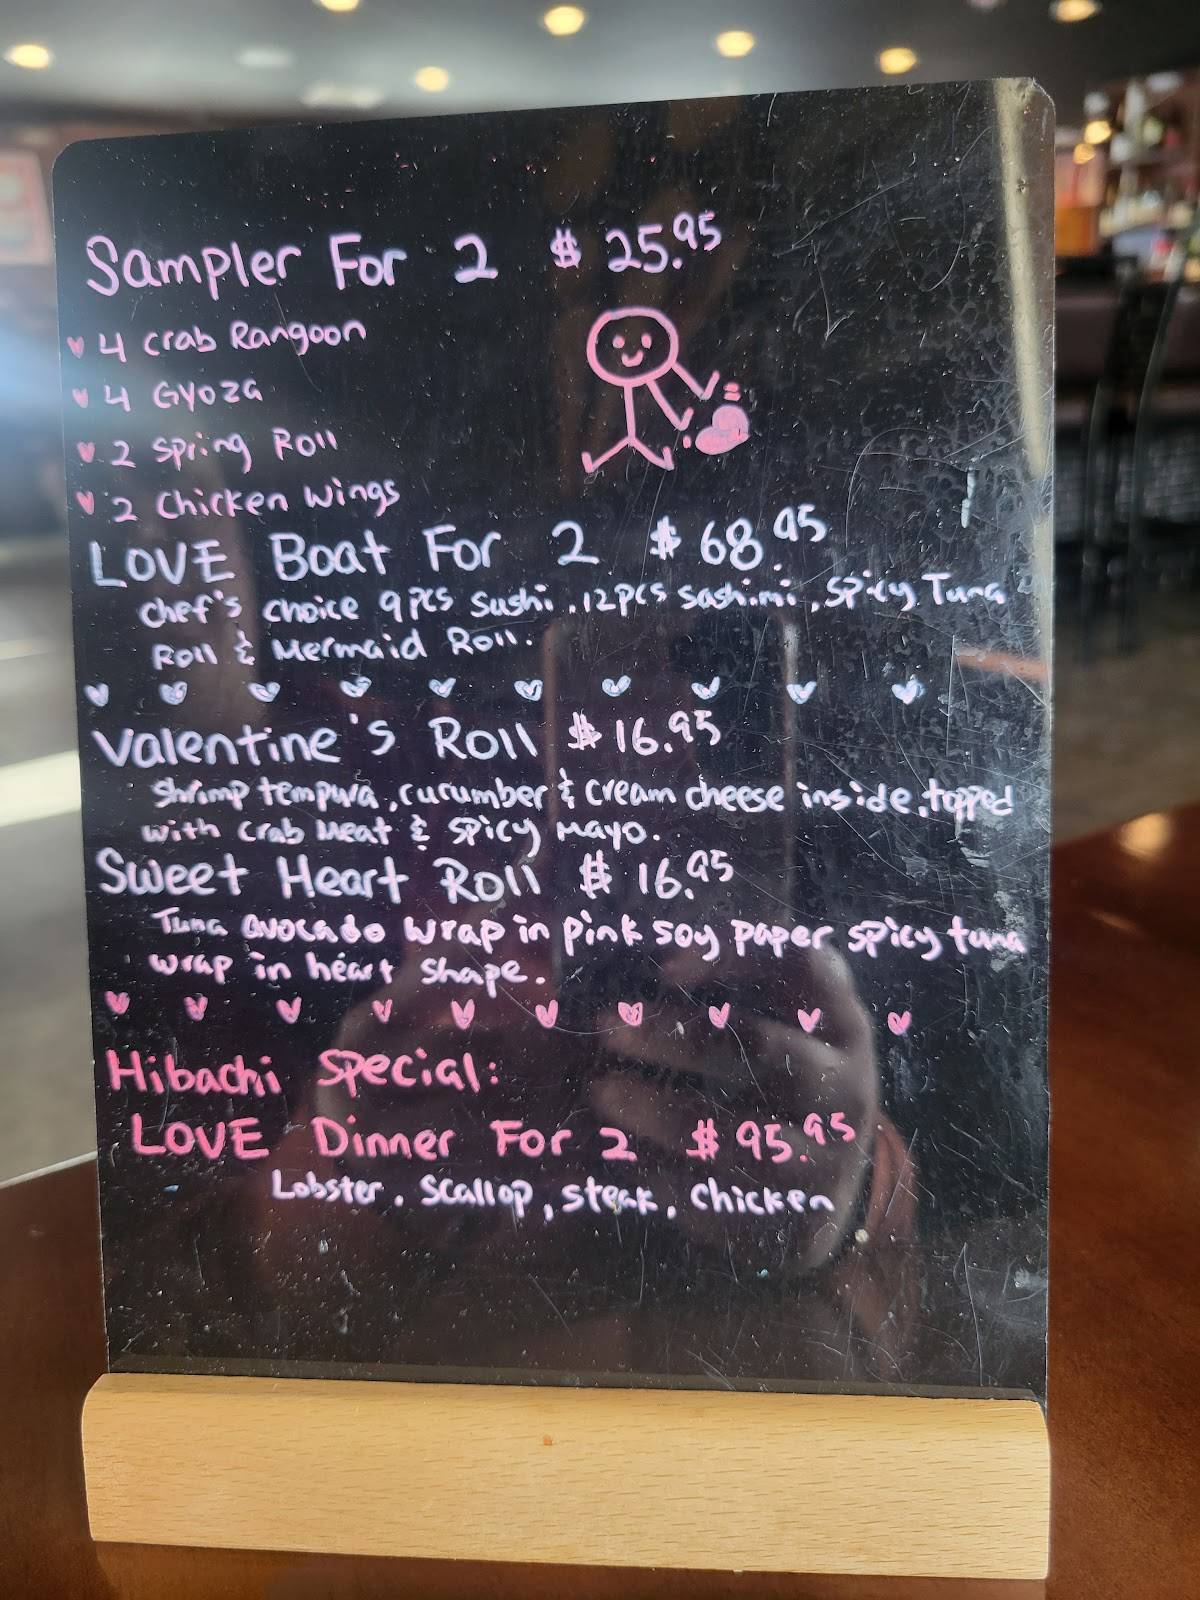 Sampler For 2 $25.95
4 Crab Rangoon
4 Gyoza
2 Spring Roll
2 Chicken Wings
LOVE Boat For 2 $68.95
Chef's Choice 9pcs Sushi, 12pcs Sashimi, Spicy Tuna
Roll & Mermaid Roll.
Valentine's Roll $16.95
Shrimp tempura, cucumber & cream cheese inside, topped
with crab meat & spicy mayo.
Sweet Heart Roll $16.95
Tuna avocado wrap in pink soy paper spicy tuna
wrap in heart shape.
Hibachi Special:
LOVE Dinner For 2 $95.95
Lobster, Scallop, steak, chicken